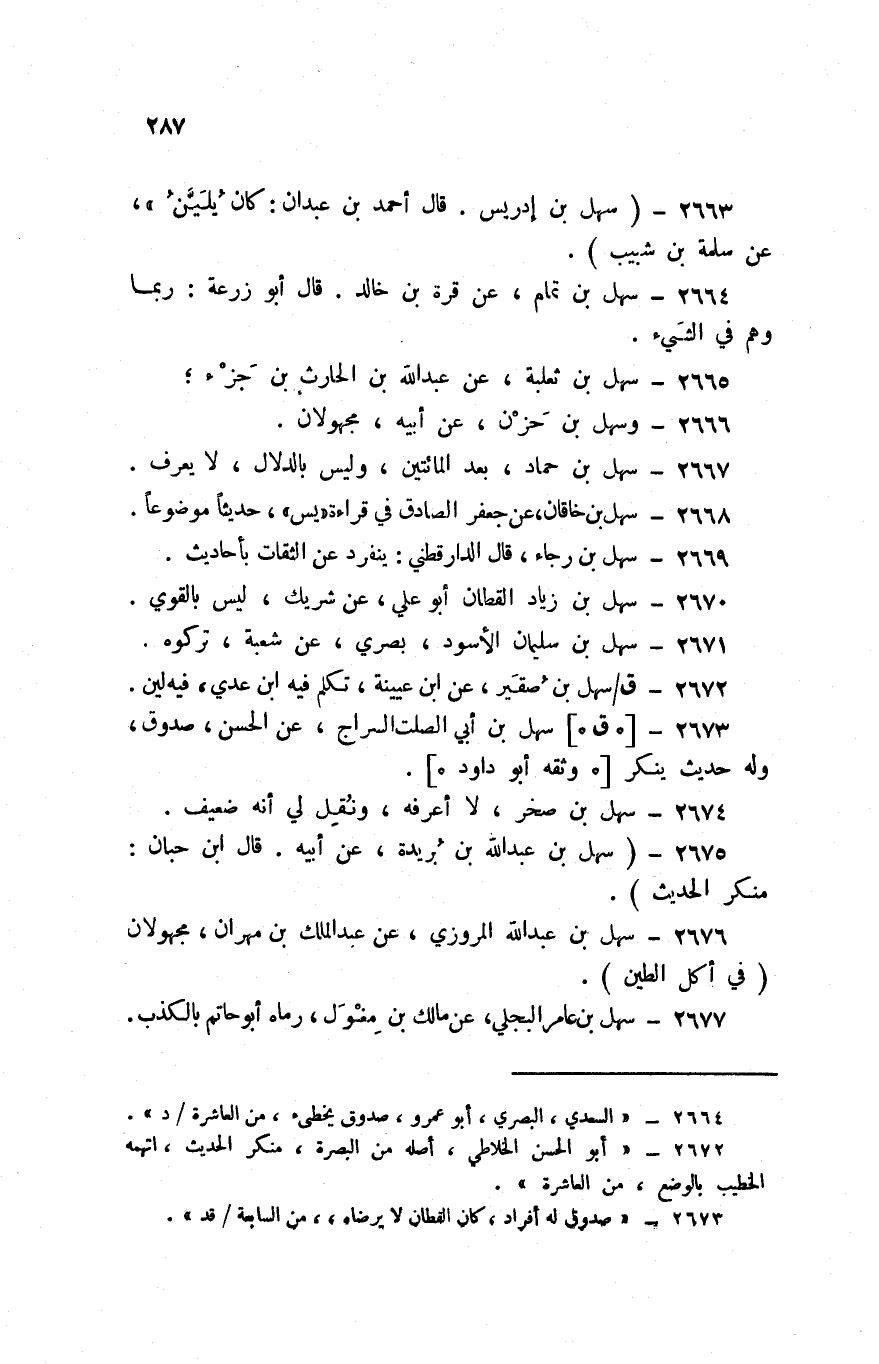 ٢٨٧
٢٦٦٣ – ( سهل بن إدريس . قال أحمد بن عبدان : كان يُلَيَّنُ » ،
عن سلمة بن شبيب ) .
٢٦٦٤ – سهل بن تمام ، عن قرة بن خالد . قال أبو زرعة : ربمـا
وهم في الشَيء .
٢٦٦٥ – سهل بن ثعلبة ، عن عبدالله بن الحارث بن جَزْء ؛
٢٦٦٦ – وسهل بن حَزْن ، عن أبيه ، مجهولان .
٢٦٦٧ – سهل بن حماد ، بعد المائتين ، وليس بالدلال ، لا يعرف .
٢٦٦٨ – سهل بن خاقان، عن جعفر الصادق في قراءة «يس» ، حديثاً موضوعاً .
٢٦٦٩ – سهل بن رجاء ، قال الدارقطني : ينفرد عن الثقات بأحاديث .
٢٦٧٠ – سهل بن زياد القطان أبو علي ، عن شريك ، ليس بالقوي .
٢٦٧١ – سهل بن سليمان الأسود ، بصري ، عن شعبة ، تركوه .
٢٦٧٢ – ق/سهل بن صُقَير ، عن ابن عيينة ، تكلم فيه ابن عدي ، فيه لين .
٢٦٧٣ – [ه ق ه] سهل بن أبي الصلت السراج ، عن الحسن ، صدوق ،
وله حديث ينكر [ه وثقه أبو داود ه] .
٢٦٧٤ – سهل بن صخر ، لا أعرفه ، ونُقِل لي أنه ضعيف .
٢٦٧٥ – ( سهل بن عبدالله بن بُريدة ، عن أبيه . قال ابن حبان :
منكر الحديث ) .
٢٦٧٦ – سهل بن عبدالله المروزي ، عن عبدالملك بن مهران ، مجهولان
( في أكل الطين ) .
٢٦٧٧ – سهل بن عامر البجلي، عن مالك بن مِغْوَل ، رماه أبو حاتم بالكذب .
٢٦٦٤ – « السعدي ، البصري ، أبو عمرو ، صدوق يخطىء ، من العاشرة / د » .
٢٦٧٢ – « أبو الحسن الخلاطي ، أصله من البصرة ، منكر الحديث ، اتهمه
الخطيب بالوضع ، من العاشرة » .
٢٦٧٣ – « صدوق له أفراد ، كان القطان لا يرضاه ، ، من السابعة / قد » .